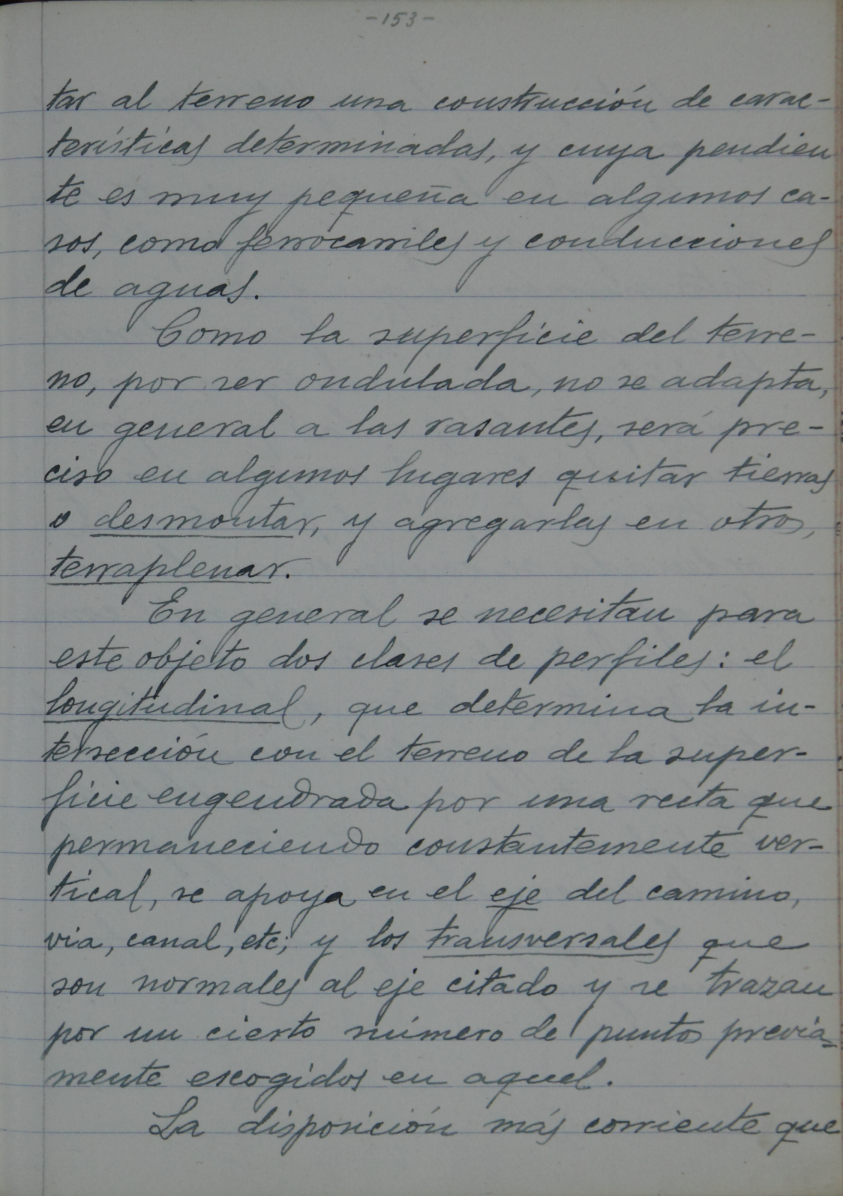 -153-
tar al terreno una construcción de carac-
terísticas determinadas, y cuya pendien
te es muy pequeña en algunos ca-
sos, como ferrocarriles y conducciones
de aguas.
Como la superficie del terre-
no, por ser ondulada, no se adapta,
en general a las rasantes, será pre-
ciso en algunos lugares quitar tierras
o desmontar, y agregarlas en otros,
terraplenar.
En general se necesitan para
este objeto dos clases de perfiles: el
longitudinal, que determina la in-
tersección con el terreno de la super-
ficie engendrada por una recta que
permaneciendo constantemente ver-
tical, se apoya en el eje del camino,
via, canal, etc; y los transversales que
son normales al eje citado y se trazan
por un cierto número de puntos previa-
mente escogidos en aquel.
La disposición más corriente que